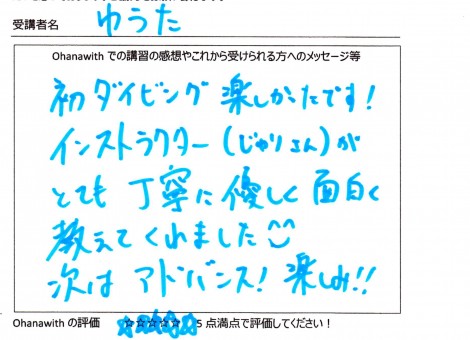 受講者名 ゆうた
Ohanawith での講習の感想やこれから受けられる方へのメッセージ等
初ダイビング 楽しかったです!
インストラクター(じゅりさん)が
とても 丁寧に 優しく 面白く
教えてくれました
次は アドバンス! 楽しみ!!
Ohanawith の評価 ☆☆☆☆☆ 5 点満点で評価してください!